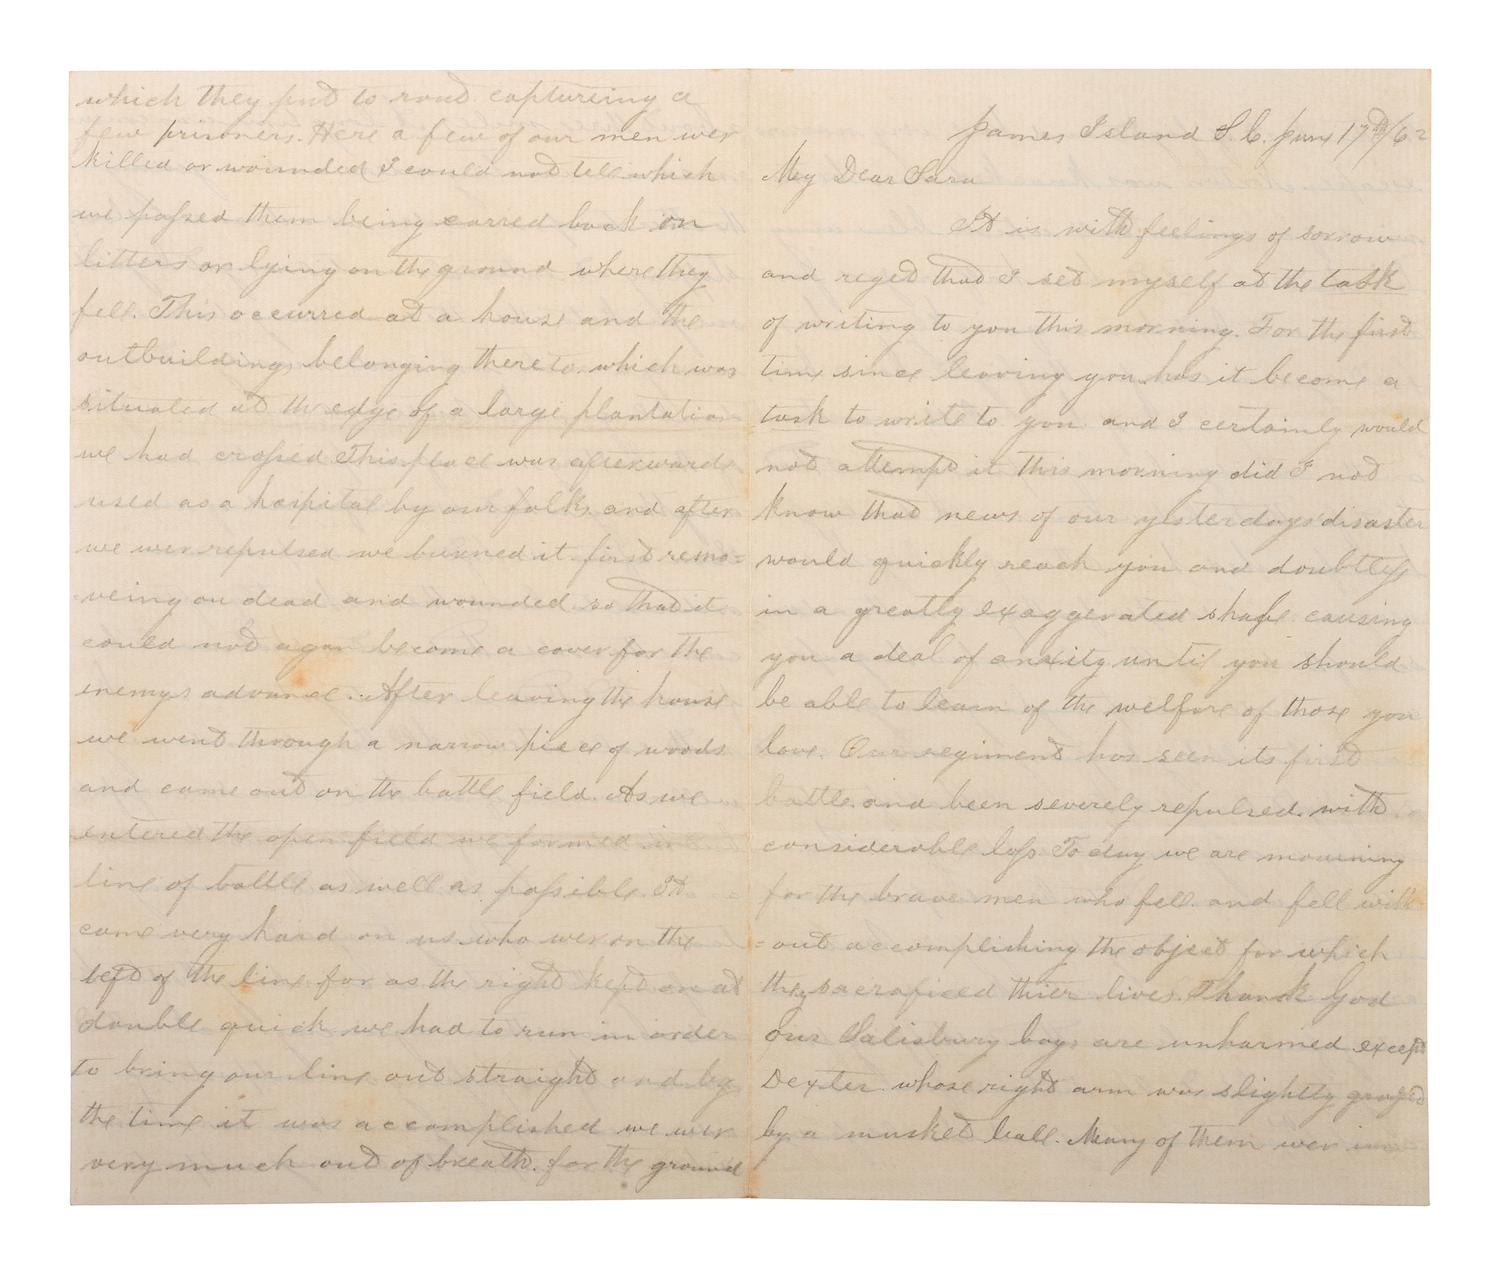 James Island S.C. June 17th/62
My Dear Sara
It is with feelings of sorrow
and reget that I set myself at the task
of writing to you this morning. For the first
time since leaving you has it become a
task to write to you and I certainly would
not attempt it this morning did I not
know that news of our yesterdays disaster
would quickly reach you and doubtless
in a greatly exaggerated shape causing
you a deal of anxity until you should
be able to learn of the welfare of those you
love. Our regiment has seen its first
battle and been severely repulsed. with
considerable loss To day we are mourning
for the brave men who fell. and fell with
=out accomplishing the object for which
they sacraficed thier lives. Thank God
our Salisbury boys are unharmed except
Dexter. whose right arm was slightly grazed
by a musket ball. Many of them wer in
which they put to rout captureing a
few prisoners. Here a few of our men wer
killed or wounded I could not tell which
we passed them being carred back on
litters or lying on the ground where they
fell. This occurred at a house and the
outbuildings belonging thereto. which was
situated at the edge of a large plantation
we had crossed This place was afterwards
used as a hospital by our folks, and after
we wer repulsed we burned it. first remo=
veing ou dead and wounded. so that it
could not agan become a cover for the
enemys advance. After leaving the house
we went through a narrow piece of woods
and came out on the battle field. As we
entered the open field we formed in
line of battle as well as possible. It
came very hard on us who wer on the
left of the line for as the right kept on at
double quick we had to run in order
to bring our line out straight and by
the time it was accomplished we wer
very much out of breath. for the ground